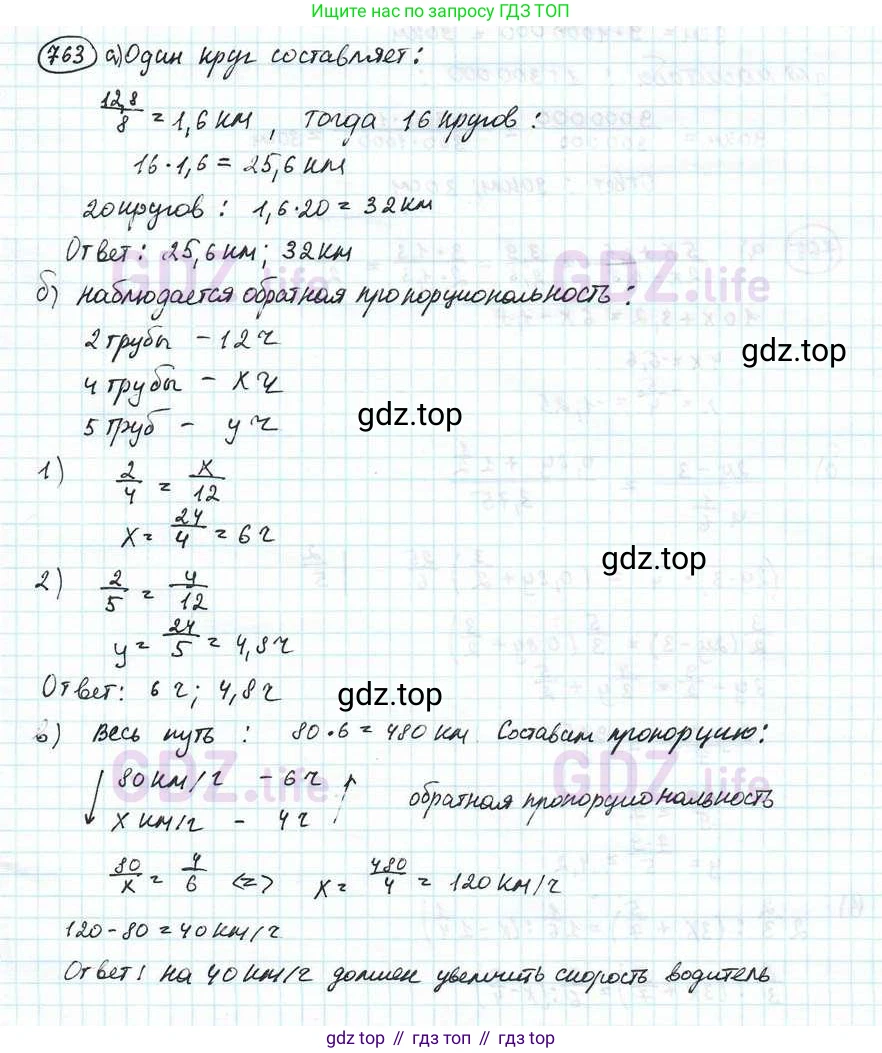 Ищите по запросу ГДЗ ТОП
763 а) Один круг составляет:
12,8/8 = 1,6 км, тогда 16 кругов:
16·1,6 = 25,6 км
20 кругов: 1,6·20 = 32 км
Ответ: 25,6 км; 32 км
GDZ.life GDZ.life
б) наблюдается обратная пропорциональность:
2 трубы – 12 ч
gdz.top
4 трубы – x ч
gdz.top
5 труб – y ч
1) 2/4 = x/12
x = 24/4 = 6 ч
gdz.top
2) 2/5 = y/12
y = 24/5 = 4,8 ч
Ответ: 6 ч; 4,8 ч
gdz.top
в) Весь путь: 80·6 = 480 км. Составим пропорцию:
↓ 80 км/ч – 6 ч ↑
GDZ.life GDZ.life
x км/ч – 4 ч обратная пропорциональность
80/x = 4/6 <=> x = 480/4 = 120 км/ч
120-80 = 40 км/ч
Ответ: на 40 км/ч должен увеличить скорость водитель
gdz top // гдз топ // gdz.top